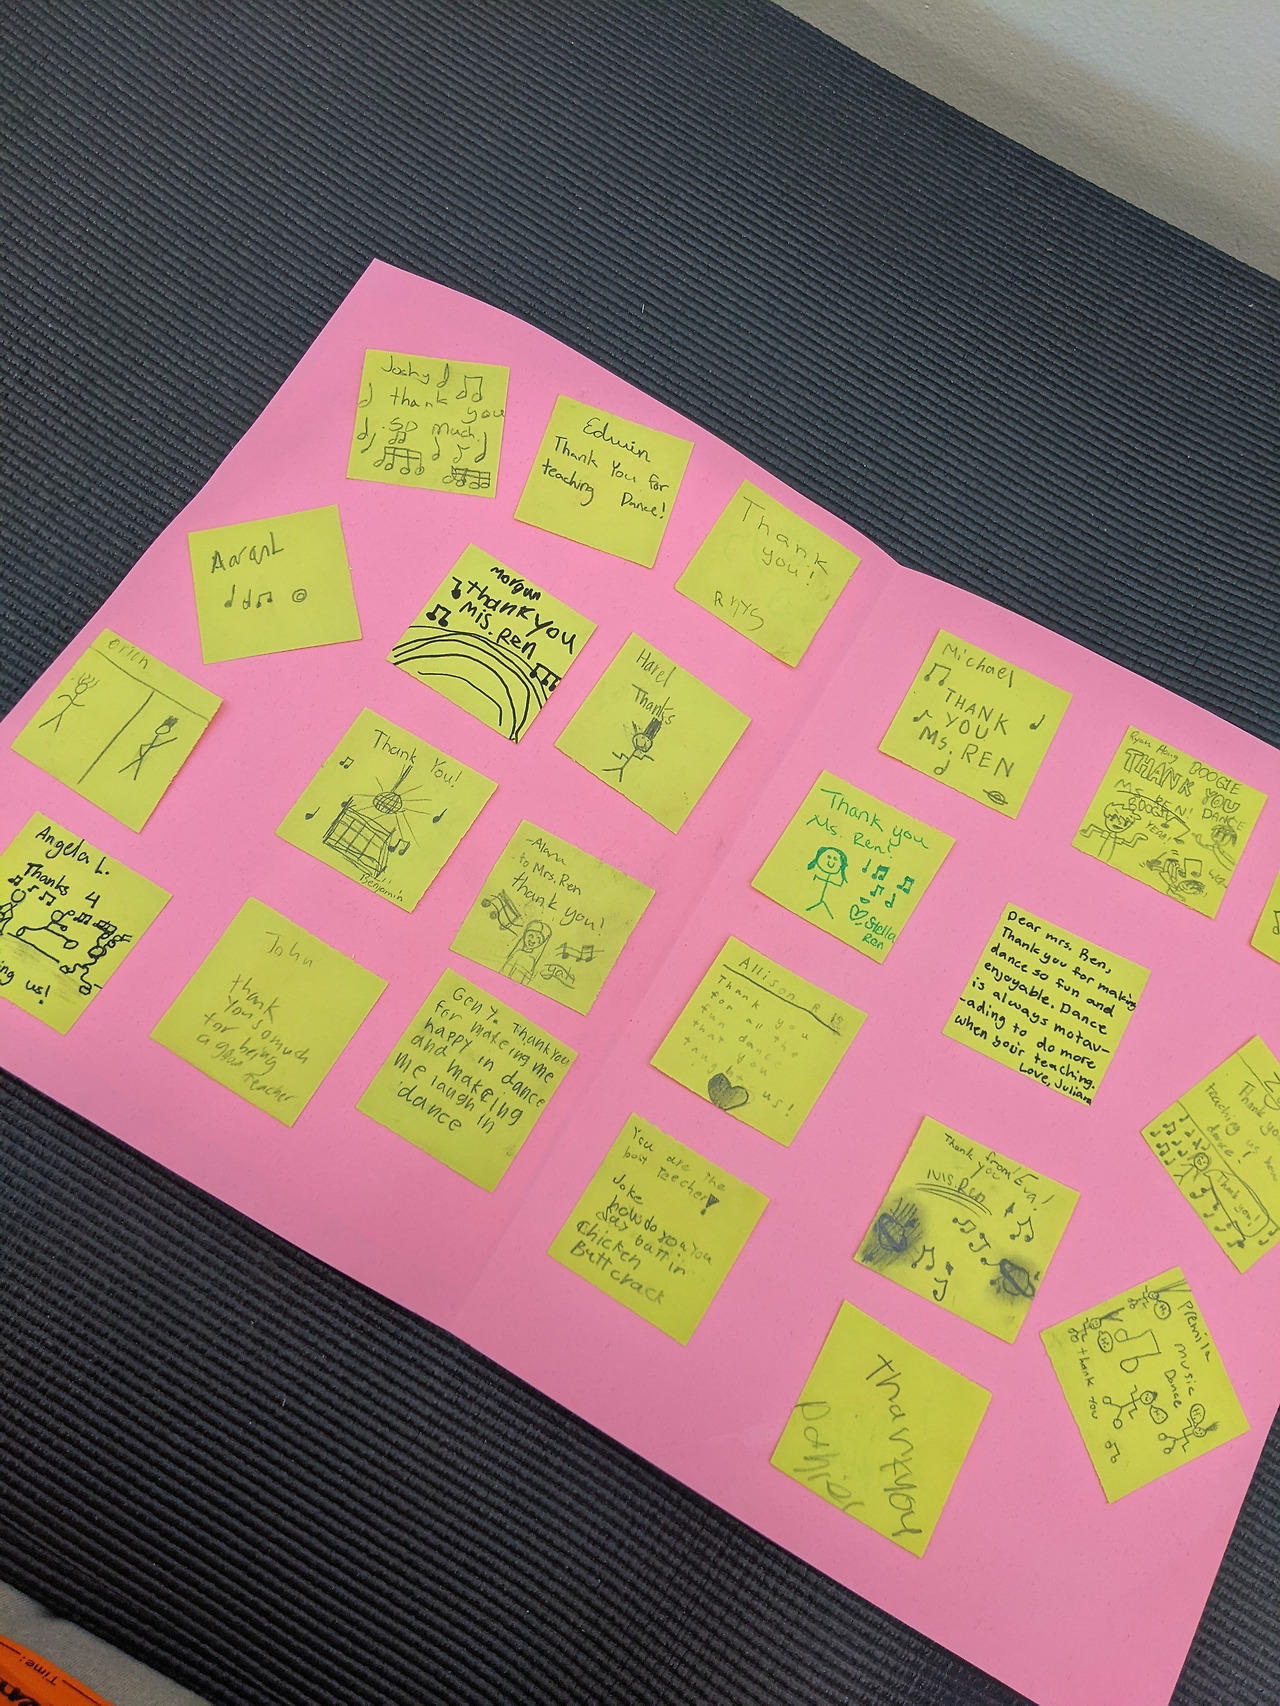 Jocky
thank you
so much.
Edwin
Thank You for
teaching Dance!
Thank
you!
RHYS
AaranL
Morgan
thank you
Mis. Ren
Harel
Thanks
orion
Thank You!
Benjamin
Angela L.
Thanks 4
ing us!
-Alana
to Mrs. Ren
thank you!
John
thank
you so much
for being
a good Teacher
Gen Y. Thank you
for makeing me
happy in dance
and makeing
me laugh in
dance
Michael
THANK
YOU
Ms. REN
Ryan Hong BOOGIE
THANK YOU
MS. REN! DANCE
BOOGIE
YEAH!
Thank you
Ms. Ren!
Stella
Ren
Dear mrs. Ren,
Thank you for making
dance so fun and
enjoyable. Dance
is always motav-
-ading to do more
when your teaching.
Love, Juliana
Allison R
Thank you
for all the
fun dance
that you
taught us!
Thank from! Eva!
you
Ms. Ren
You are the
best Teecher!
Joke
how do you
say butt in
Chicken
Butt crack
Thank you
teaching us how
dance!
Thank you!
Premila
music
Dance
thank you
thank you
Time: